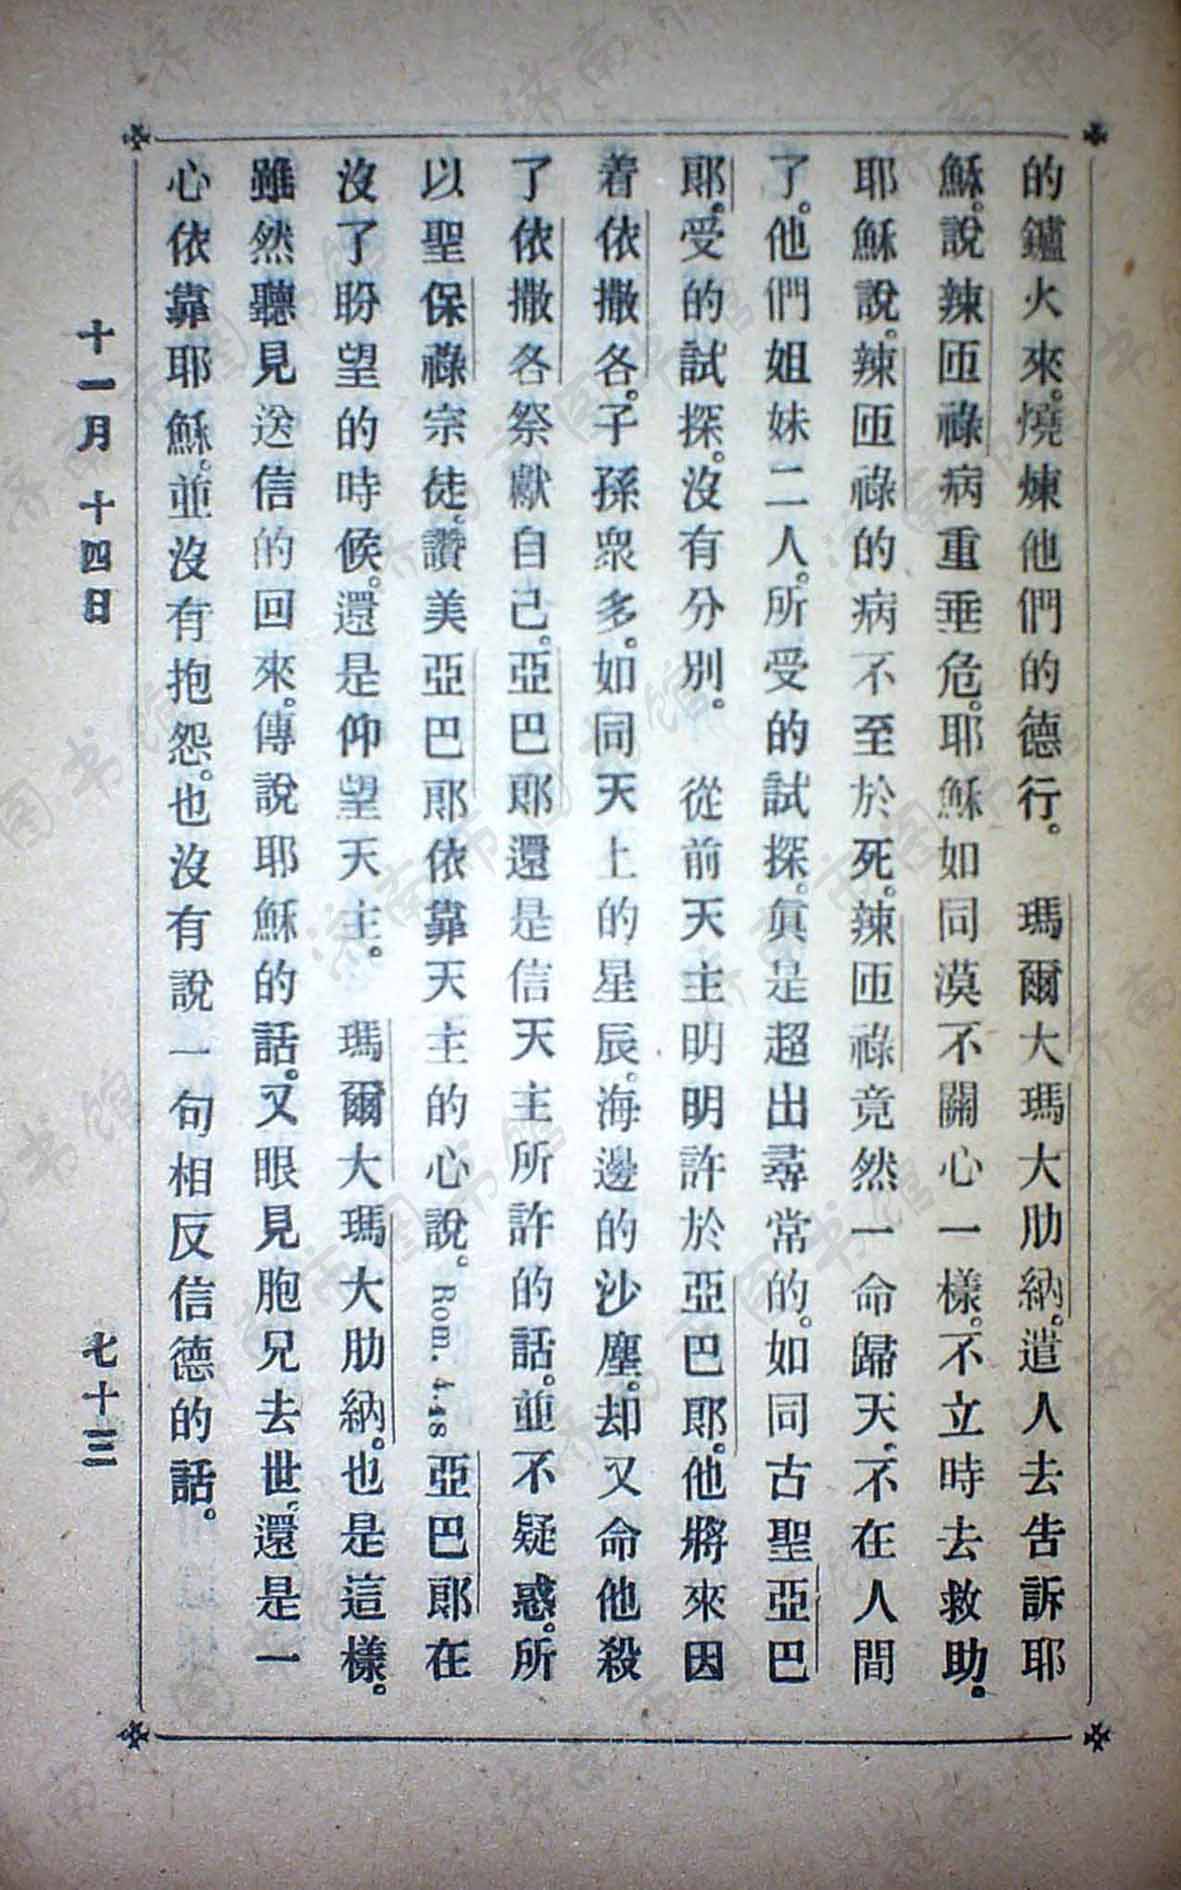 的鑪火來。燒煉他們的德行。　瑪爾大瑪大肋納。遣人去告訴耶
穌。說辣匝祿病重垂危。耶穌如同漠不關心一樣。不立時去救助。
耶穌說。辣匝祿的病不至於死。辣匝祿竟然一命歸天。不在人間
了。他們姐妹二人。所受的試探。眞是超出尋常的。如同古聖亞巴
郎。受的試探。沒有分別。　從前天主明明許於亞巴郎。他將來因
着依撒各。子孫眾多。如同天上的星辰。海邊的沙塵。却又命他殺
了依撒各祭獻自己。亞巴郎還是信天主所許的話。並不疑惑。所
以聖保祿宗徒。讚美亞巴郎依靠天主的心說。Rom. 4.48 亞巴郎在
沒了盼望的時候。還是仰望天主。　瑪爾大瑪大肋納。也是這樣。
雖然聽見送信的回來。傳說耶穌的話。又眼見胞兄去世。還是一
心依靠耶穌。並沒有抱怨。也沒有說一句相反信德的話。
十一月十四日　七十三
济南市图书馆